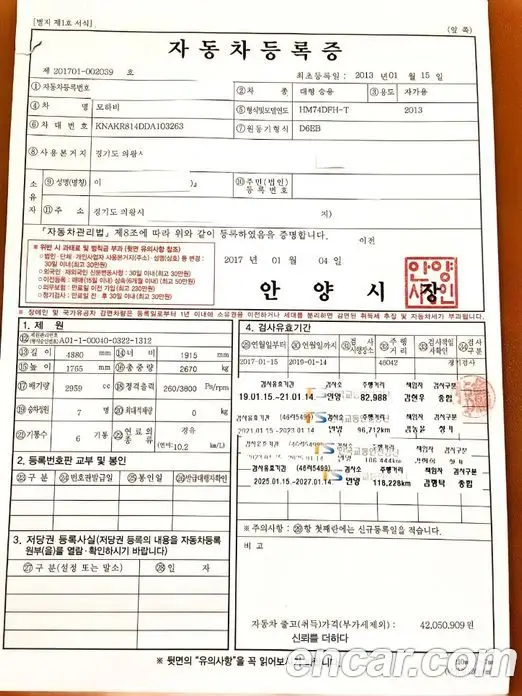 [별지 제1호 서식]
(앞 쪽)
자 동 차 등 록 증
제 201701-002039 호
최초등록일 : 2013 년 01 월 15 일
① 자동차등록번호
② 차 종 대형 승용 ③ 용도 자가용
④ 차 명 모하비
⑤ 형식및모델연도 HM74DPH-T 2013
⑥ 차 대 번 호 KNAKR814DDA103263
⑦ 원동기형식 D6EB
⑧ 사용본거지 경기도 의왕시
소유자
⑨ 성명(명칭) 이
⑩ 주민(법인)등록번호
⑪ 주 소 경기도 의왕시 지)
「자동차관리법」 제8조에 따라 위와 같이 등록하였음을 증명합니다.
이전
2017 년 01 월 04 일
※ 위반 시 과태료 및 범칙금 부과 (뒷면 유의사항 참조)
○법인·단체·개인사업자 사용본거지(주소)·성명(상호) 등 변경 :
30일 이내(최고 30만원)
○외국인·재외국인 신분변동사항 : 30일 이내(최고 30만원)
○이전등록 : 매매(15일 이내) 상속(6개월 이내) (최고 50만원)
○의무보험 : 만료일 이전 가입 (최고 230만원)
○정기검사 : 만료일 전 후 30일 이내 (최고 30만원)
안 양 시 장
※ 장애인 및 국가유공자 감면차량은 등록일로부터 1년 이내에 소유권을 이전하거나 세대를 분리하면 감면된 취득세 추징 및 자동차세가 부과됩니다.
1. 제 원
⑫ A01-1-00040-0322-1312
⑬ 길 이 4880 mm ⑭ 너 비 1915 mm
⑮ 높 이 1765 mm ⑯ 총 중 량 2670 kg
⑰ 배기량 2959 cc ⑱ 정격출력 260/3800 Ps/rpm
⑲ 승차정원 7 명 ⑳ 최대적재량 0 kg
㉑ 기통수 6 기통 ㉒ 연료의 종류 경유
(연비: 10.2 km/L)
2. 등록번호판 교부 및 봉인
㉓ 구 분 ㉔ 번호판발급일 ㉕ 봉인일 ㉖ 발급대행자확인
3. 저당권 등록사실(저당권 등록의 내용을 자동차등록
원부(을)를 열람·확인하시기 바랍니다)
㉗ 구 분(설정 또는 말소) ㉘ 일 자
4. 검사유효기간
㉙ 연월일부터 ㉚ 연월일까지 ㉛ 검사시행장소 ㉜ 주행거리 ㉝ 검사책임자확인 ㉞ 검사구분
2017-01-15 2019-01-14 46042 정기검사
검사유효기간 검사소 주행거리 책임자 검사구분
19.01.15.~21.01.14 안양 82,988 김현우 종합
검사유효기간 (46서5499)
96,712km
(46서5499)
106,444km
검사유효기간 (46서5499) 검사소 주행거리 책임자 검사구분
2025.01.15.~2027.01.14 안양 118,228km 김형탁 종합
※ 주의사항 : ㉙항 첫째란에는 신규등록일을 적습니다.
비 고
자동차 출고(취득)가격(부가세제외) : 42,050,909 원
신뢰를 더하다
※ 뒷면의 "유의사항"을 꼭 읽어보시기
encar.com